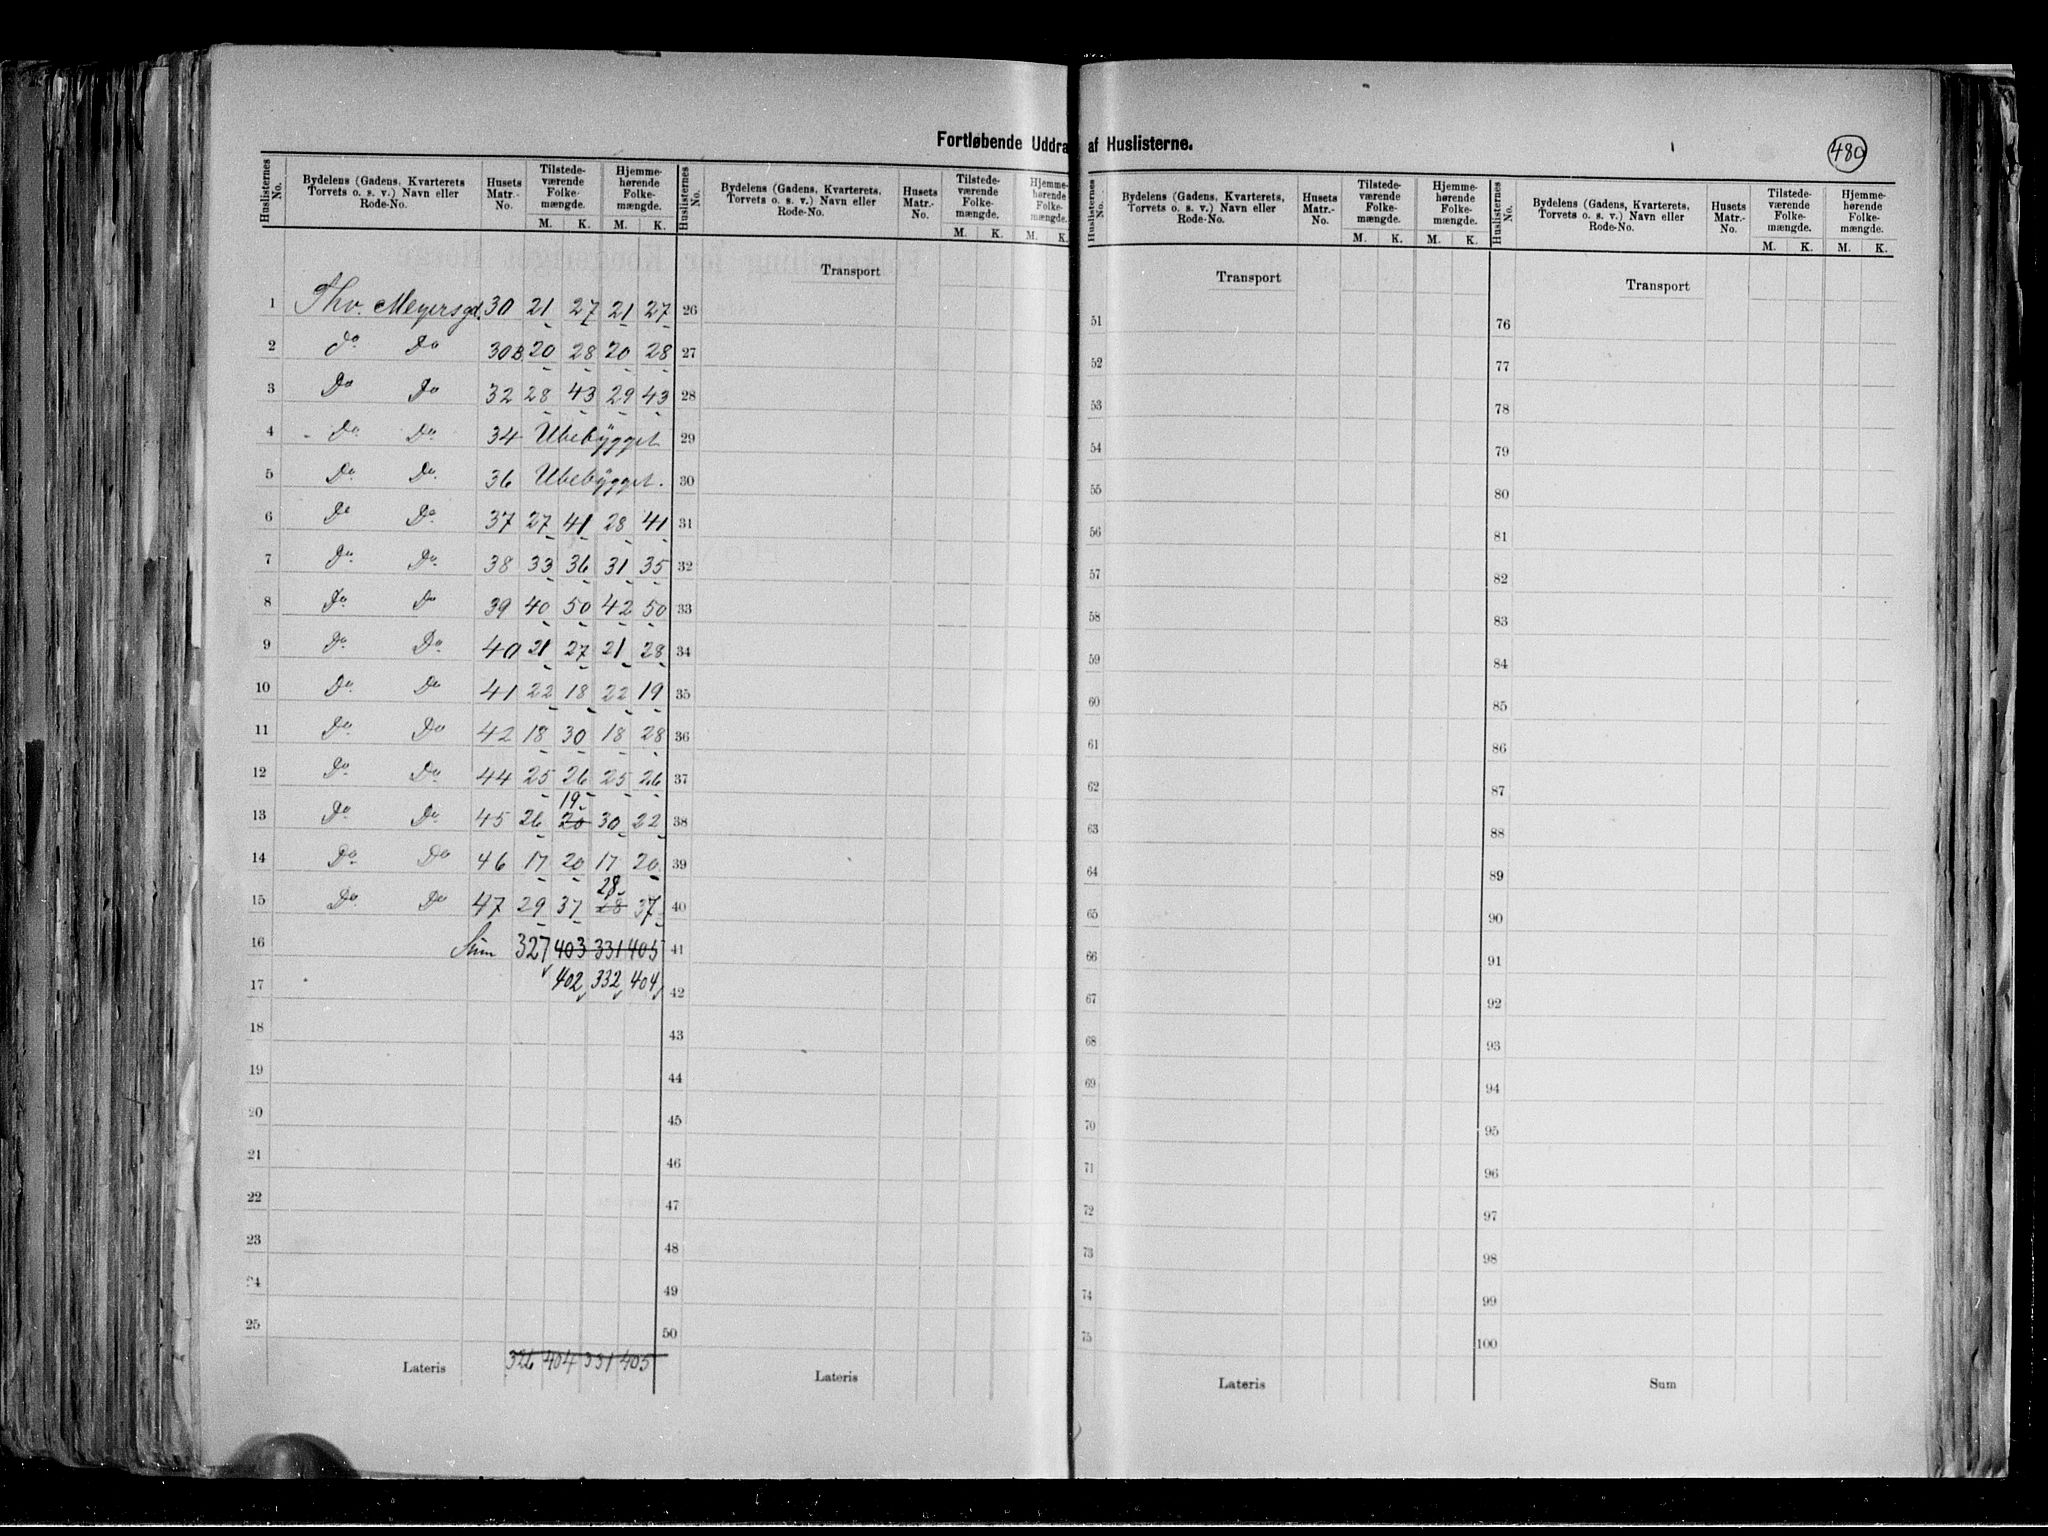 Fortløbende Uddra af Huslisterne.
480
Huslisternes No. Bydelens (Gadens, Kvarterets Torvets o. s. v.) Navn eller Rode-No. Husets Matr.-No. Tilstede-værende Folke-mængde. M. K. Hjemme-hørende Folke-mængde. M. K.
1 Thv. Meyersgd. 30 21 27 21 27
2 do Do 30B. 20 28 20 28
3 Do Do 32 28 43 29 43
4 Do Do 34 Ubebygget
5 Do Do 36 Ubebygget.
6 Do Do 37 27 41 28 41
7 Do Do 38 33 36 31 35
8 Do Do 39 40 50 42 50
9 Do Do 40 21 27 21 28
10 Do Do 41 22 18 22 19
11 Do Do 42 18 30 18 28
12 Do Do 44 25 26 25 26
19
13 Do Do 45 26 20 30 22
14 Do Do 46 17 20 17 20
28
15 Do Do 47 29 37 28 37
16 Sum 327 403 331 405
17 402 332 404
18
19
20
21
22
23
24
25
Lateris 326 404 331 405
Huslisternes No. Bydelens (Gadens, Kvarterets, Torvets o. s. v.) Navn eller Rode-No. Husets Matr.-No. Tilstede-værende Folke-mængde. M. K. Hjemme-hørende Folke-mængde. M. K.
Transport
26
27
28
29
30
31
32
33
34
35
36
37
38
39
40
41
42
43
44
45
46
47
48
49
50
Lateris
Huslisternes No. Bydelens (Gadens, Kvarterets, Torvets o. s. v.) Navn eller Rode-No. Husets Matr.-No. Tilstede-værende Folke-mængde. M. K. Hjemme-hørende Folke-mængde. M. K.
Transport
51
52
53
54
55
56
57
58
59
60
61
62
63
64
65
66
67
68
69
70
71
72
73
74
75
Lateris
Huslisternes No. Bydelens (Gadens, Kvarterets, Torvets o. s. v.) Navn eller Rode-No. Husets Matr.-No. Tilstede-værende Folke-mængde. M. K. Hjemme-hørende Folke-mængde. M. K.
Transport
76
77
78
79
80
81
82
83
84
85
86
87
88
89
90
91
92
93
94
95
96
97
98
99
100
Sum